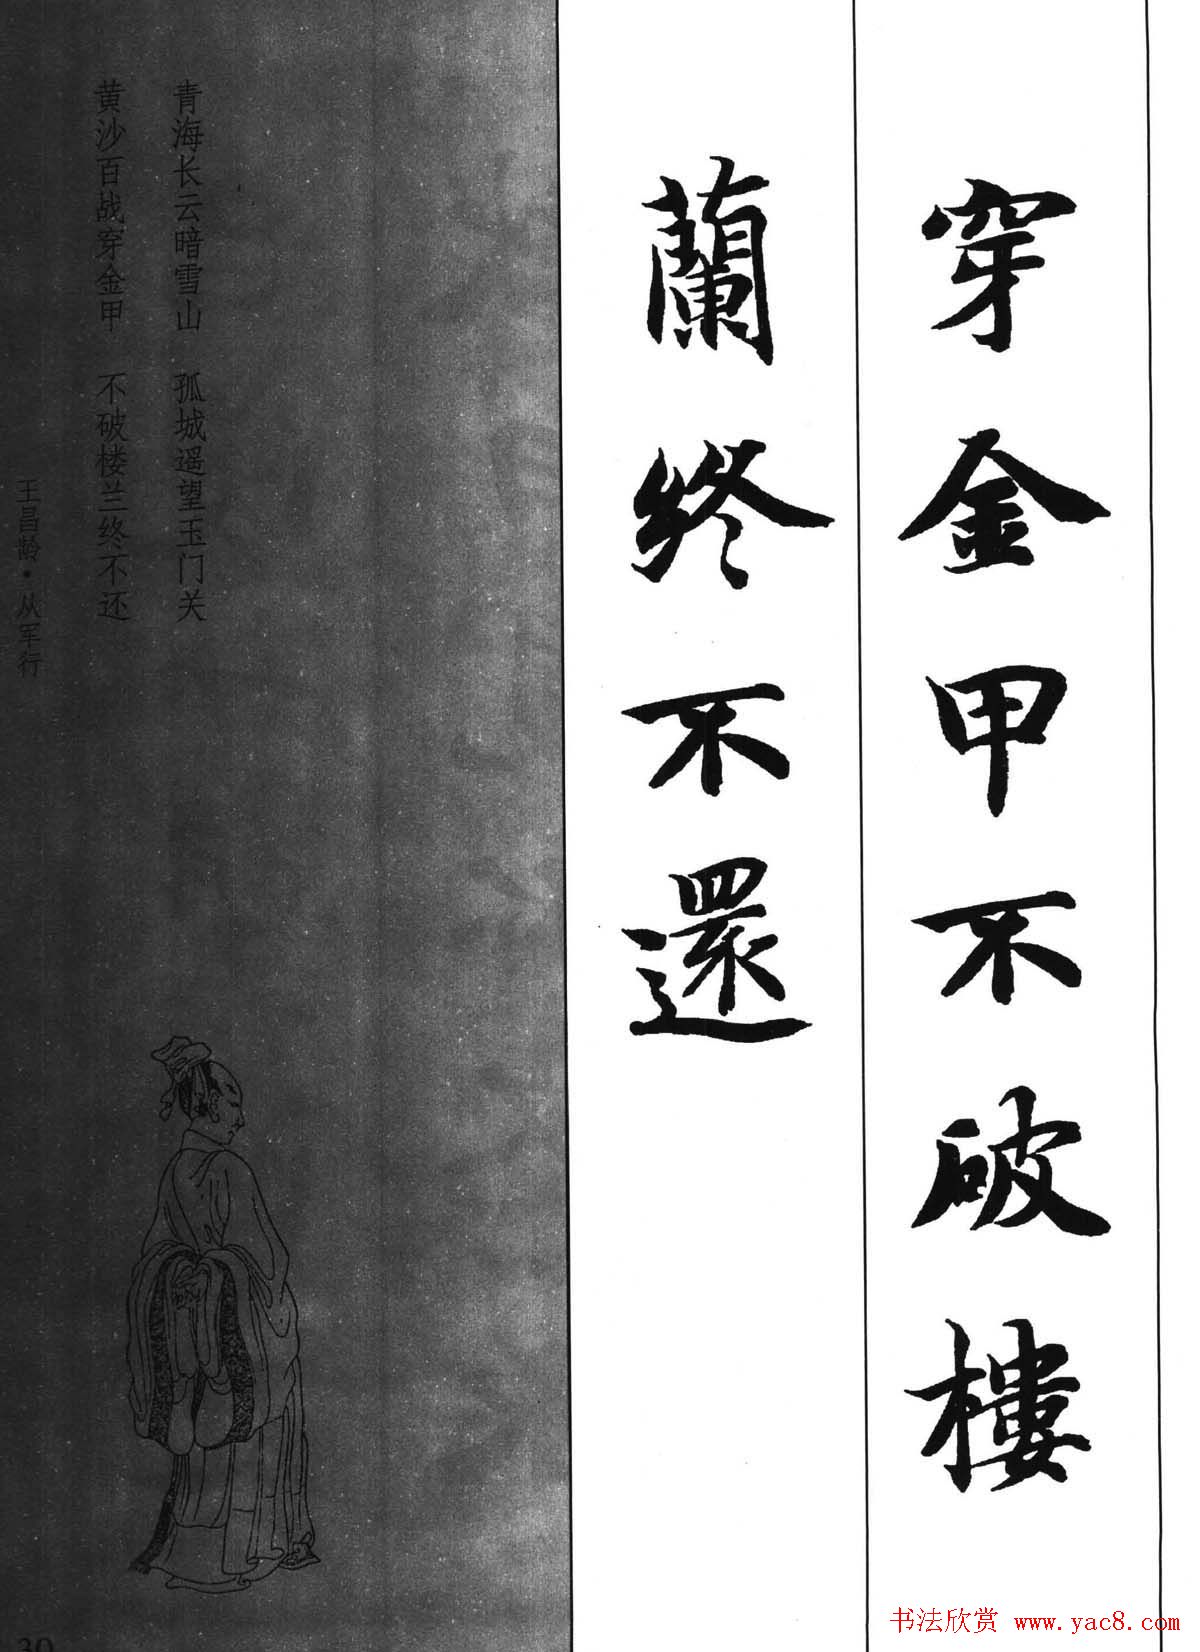 穿金甲不破樓
蘭終不還
青海长云暗雪山 孤城遥望玉门关
黄沙百战穿金甲 不破楼兰终不还
王昌龄·从军行
30
书法欣赏 www.yac8.com